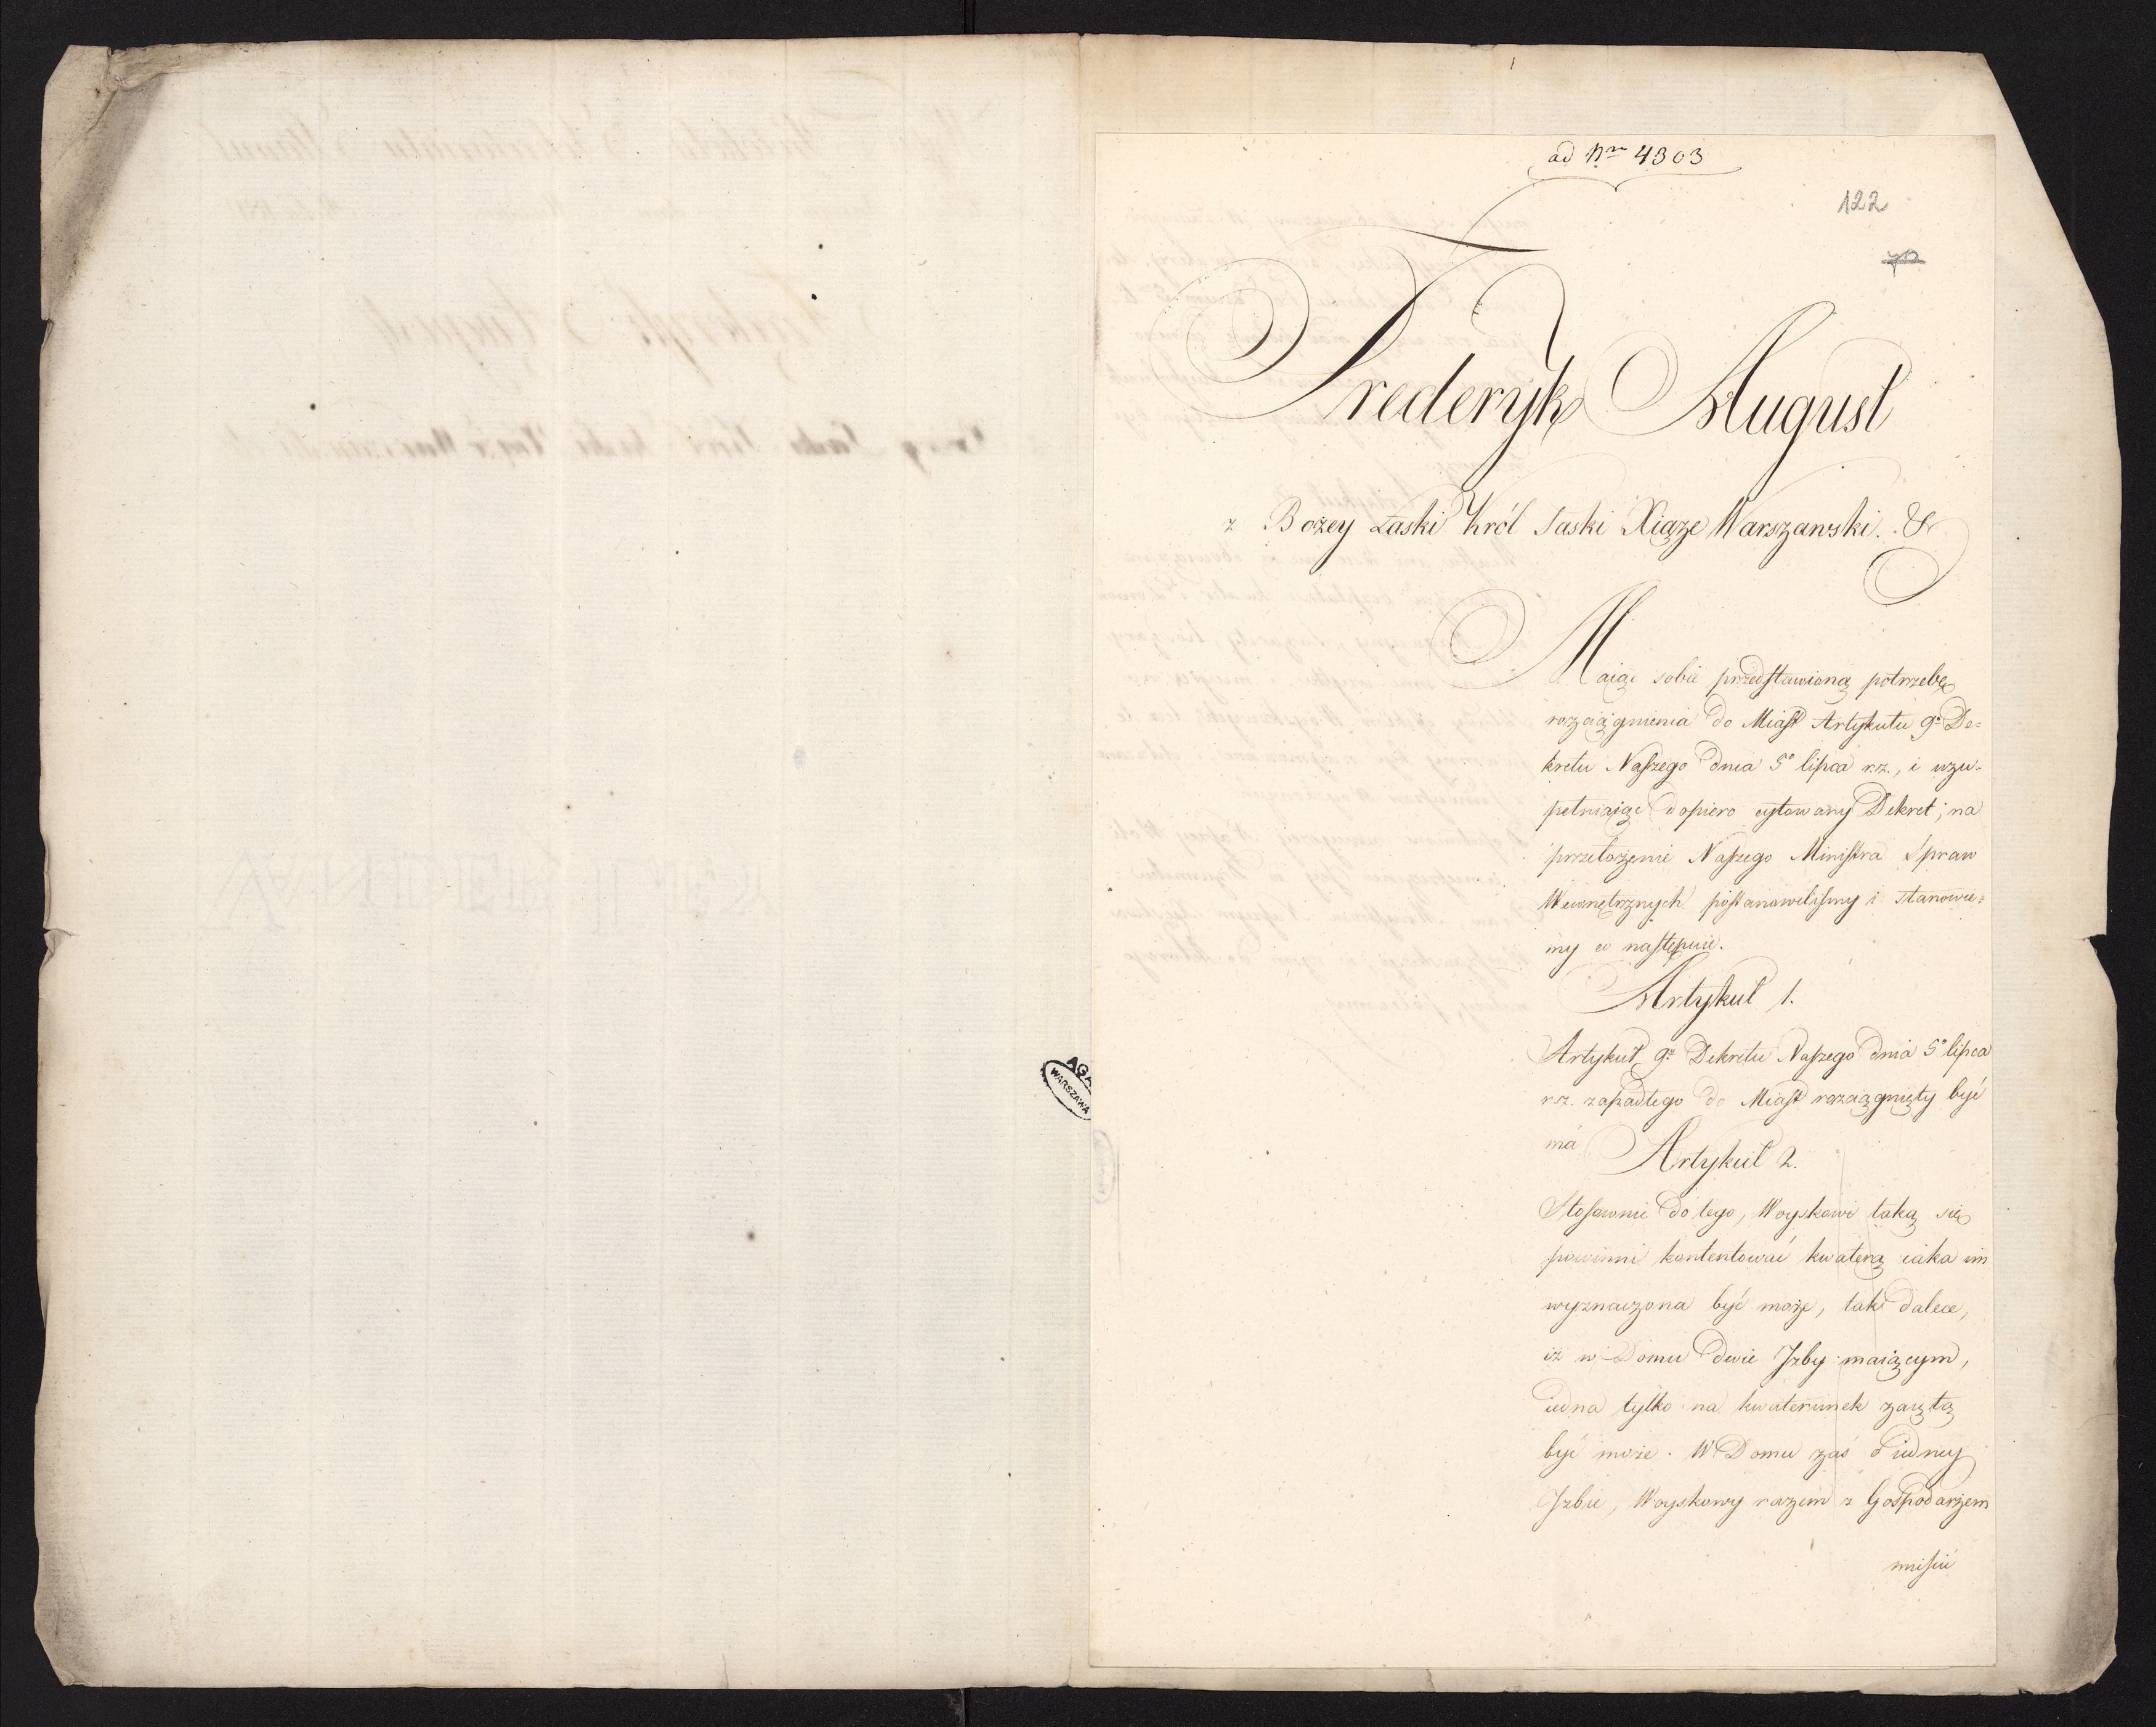 ad Nrm 4303
122
Frederyk August
z Bożey Łaski Król Saski Xiąże Warszawski. &
Maiąc sobie przedstawioną potrzebę
rozciągnienia do Miast Artykułu 9º De=
kretu Naszego dnia 5º lipca r.z., i uzu-
pełniaiąc dopiero cytowany Dekret, na
przełożenie Naszego Ministra Spraw
Wewnętrznych postanowiliśmy i stanowie=
my co następuie.
Artykuł 1.
Artykuł 9ty Dekretu Naszego dnia 5º lipca
r.z. zapadłego do Miast rozciągnięty być
má
Artykuł 2.
Stosownie do tego, Woyskowi taką się
powinni kontentować kwaterą iaka im
wyznaczona być może, tak dalece,
iż w Domu dwie Izby maiącym,
iedna tylko na kwaterunek zaiętą
być może. W Domu zaś o iedney
Izbie, Woyskowy razem z Gospodarzem
mieścić
AGA
WARSZAWA